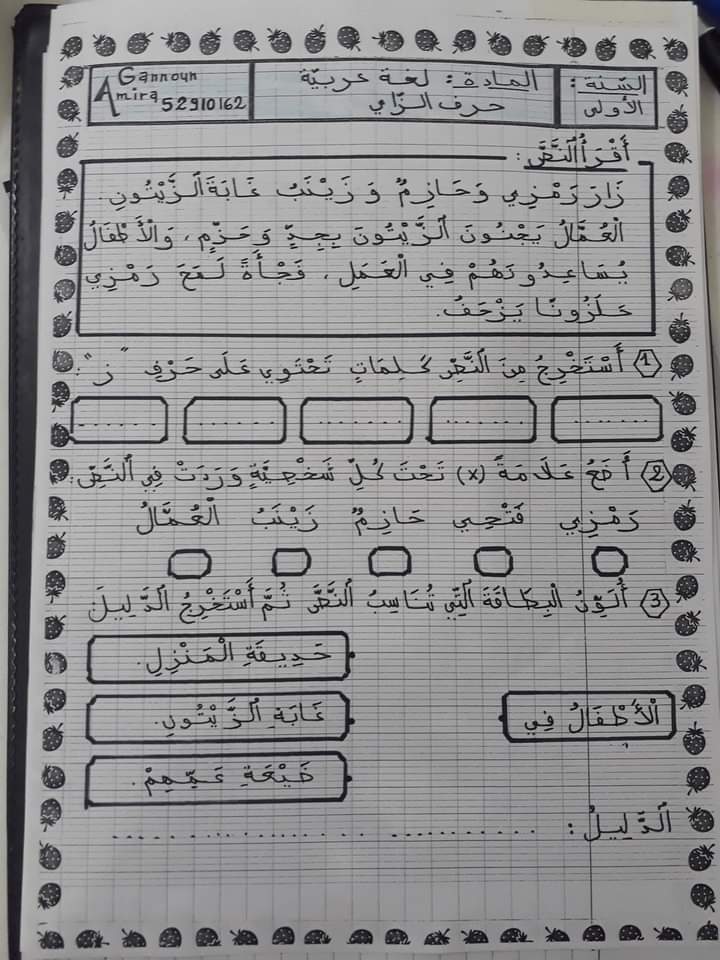 السّنة: الأولى
المادة: لغة عربيّة
حرف الزّاي
Gannoun
Amira 52910162
أَقْرَأُ النَّصَّ:
زَارَ رَمْزِي وَحَازِمٌ وَ زَيْنَبُ غَابَةَ الزَّيْتُونِ.
الْعُمَّالُ يَجْنُونَ الزَّيْتُونَ بِجِدٍّ وَحَزْمٍ، وَالْأَطْفَالُ
يُسَاعِدُونَهُمْ فِي الْعَمَلِ، فَجْأَةً لَمَحَ رَمْزِي
حَلَزُونًا يَزْحَفُ.
1 أَسْتَخْرِجُ مِنَ النَّصِّ كَلِمَاتٍ تَحْتَوِي عَلَى حَرْفِ "ز":
2 أَضَعُ عَلَامَةً (x) تَحْتَ كُلِّ شَخْصِيَّةٍ وَرَدَتْ فِي النَّصِّ:
رَمْزِي فَتْحِي حَازِمٌ زَيْنَبُ الْعُمَّالُ
3 أُلَوِّنُ الْبِطَاقَةَ الَّتِي تُنَاسِبُ النَّصَّ ثُمَّ أَسْتَخْرِجُ الدَّلِيلَ
حَدِيقَةِ الْمَنْزِلِ.
الْأَطْفَالُ فِي غَابَةِ الزَّيْتُونِ.
ضَيْعَةِ عَمِّهِمْ.
الدَّلِيلُ: ..............................